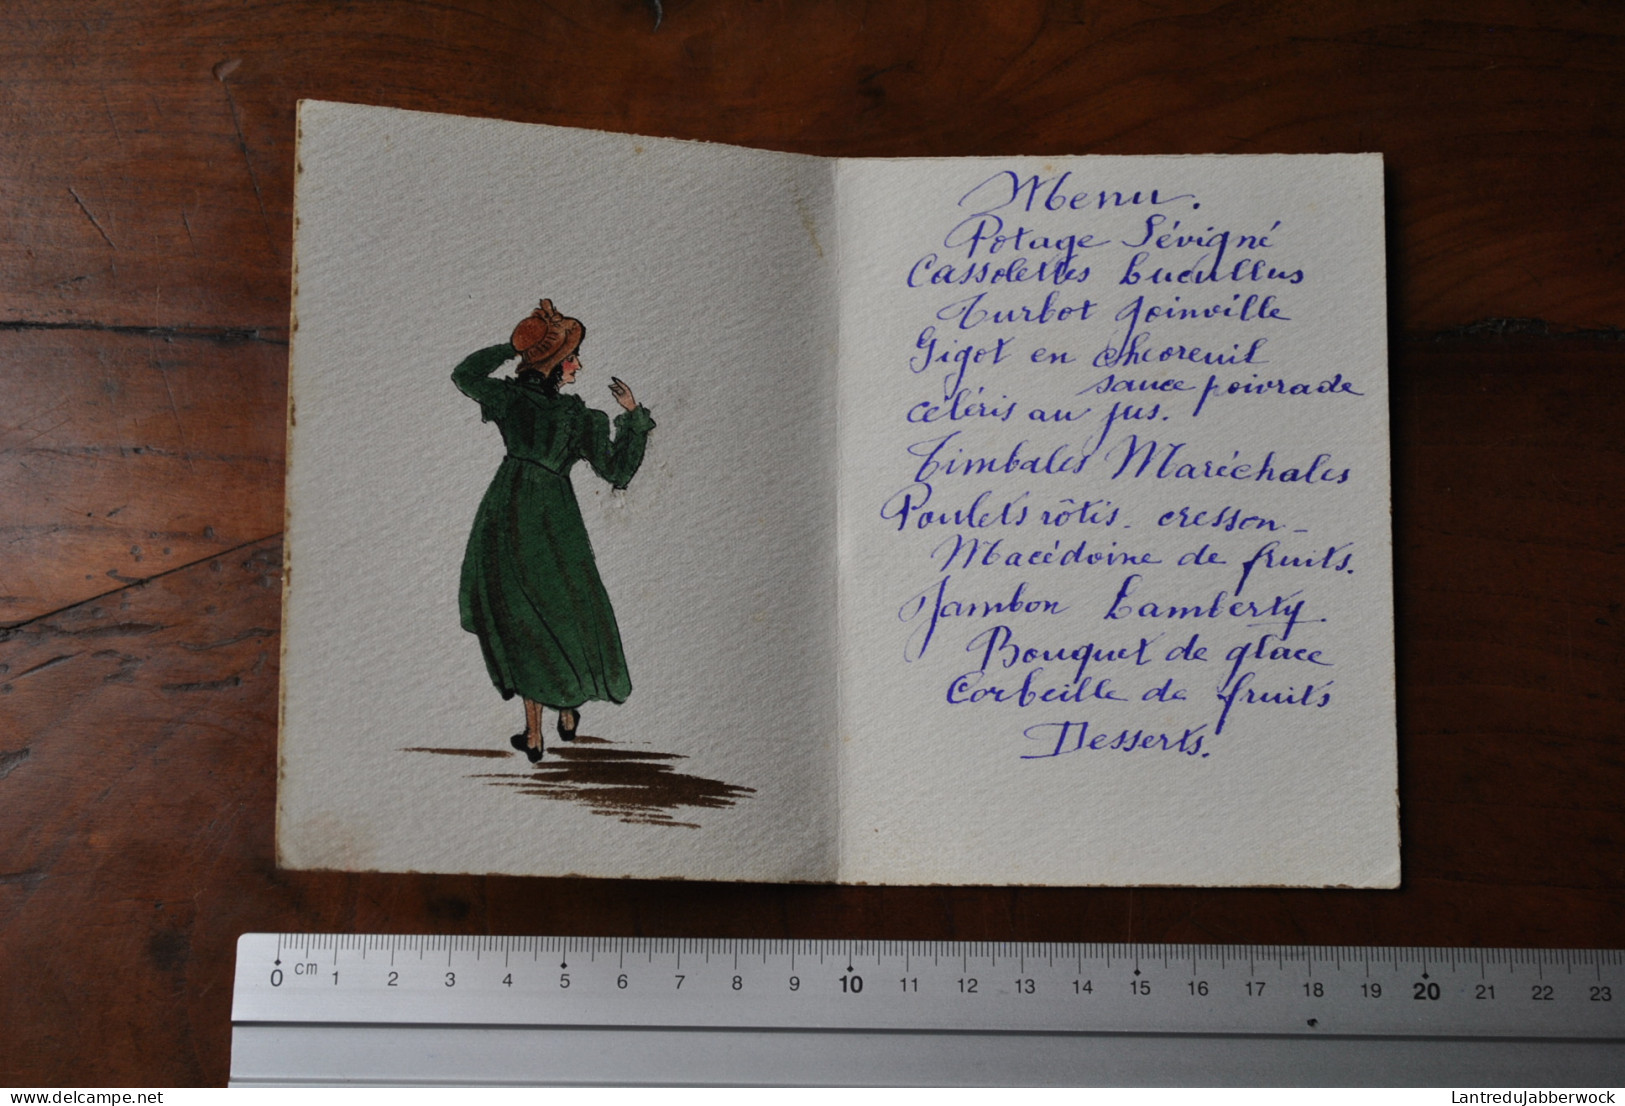 Menu.
Potage Sévigné
Cassolettes Lucullus
Turbot Joinville
Gigot en Chevreuil
sauce poivrade
Céleris au jus.
Timbales Maréchales
Poulets rôtis - cresson -
Macédoine de fruits.
Jambon Lamberty.
Bouquet de glace
Corbeille de fruits
Desserts.
0 cm 1 2 3 4 5 6 7 8 9 10 11 12 13 14 15 16 17 18 19 20 21 22 23
delcampe.net
LantreduJabberwock